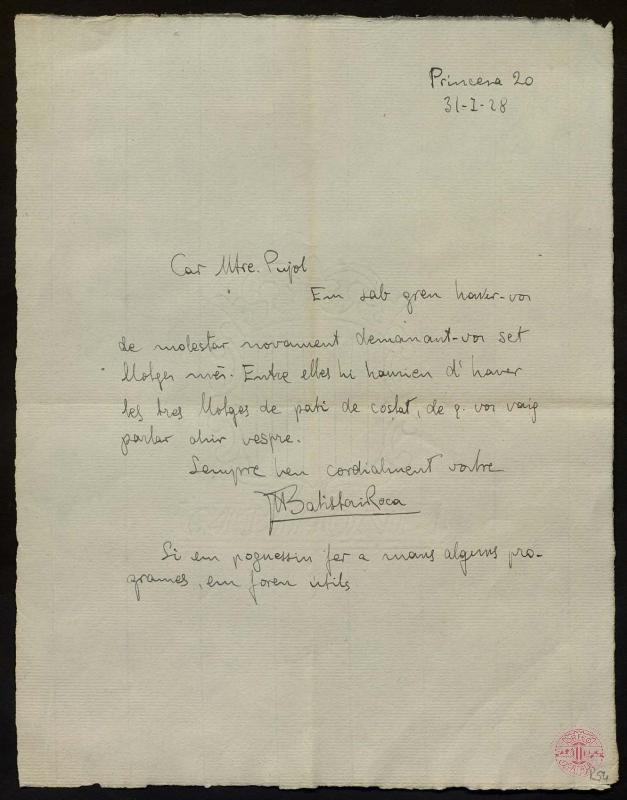 Princesa 20
31-I-28
Car Mtre. Pujol
Em sab greu haver-vos
de molestar novament demanant-vos set
llotges més. Entre elles hi haurien d'haver
les tres llotges de pati de costat, de q. vos vaig
parlar ahir vespre.
Sempre ben cordialment vostre
JMBatistaiRoca
Si em poguessin fer a mans alguns pro-
grames, em foren útils